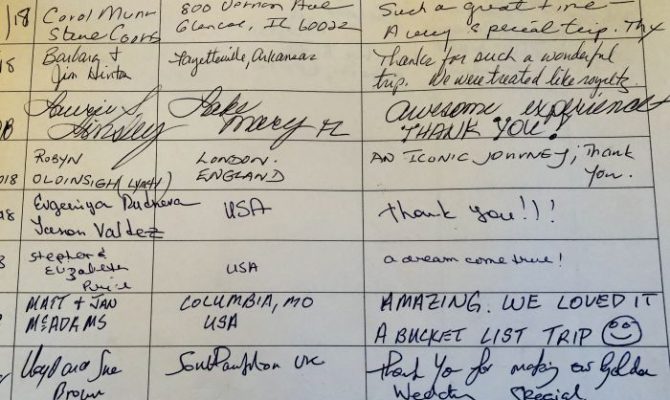 18 Carol Munn 800 Vernon Ave Such a great time -
Steve Coons Glencoe, IL 60022 A very special trip. Thx
18 Barbara & Fayetteville, Arkansas Thanks for such a wonderful
Jim Hinton trip. We were treated like royalty.
Laurie S. Lake awesome experience
Ainsley Mary FL THANK YOU!
ROBYN LONDON. AN ICONIC JOURNEY; Thank
018 OLDINSIGH (LYATY) ENGLAND You.
18 Evgeniya Rudneva USA thank you!!!
Yaron Valdez
8 Stephen & USA a dream come true!
Elizabeth
Price
MATT & JAN COLUMBIA, MO AMAZING. WE LOVED IT
MCADAMS USA A BUCKET LIST TRIP
Lloyd and Sue Southampton UK thank You for making our Golden
Brown Wedding Special